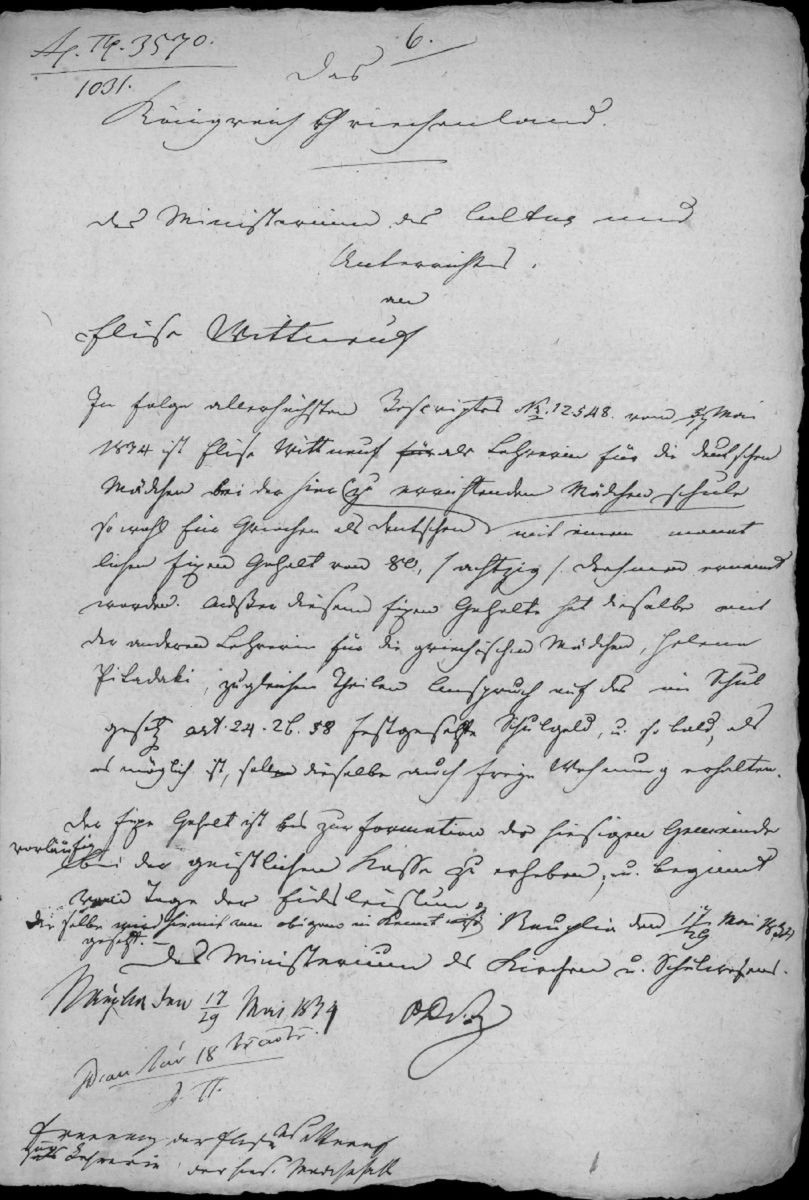 Αρ. Πρ. 3570.
1031.
6.
Das
Königreich Griechenland.
Das Ministerium des Cultus und
Unterrichtes.
an
Elise Wittneuf
In Folge allerhöchsten Rescriptes No. 12548. vom 5/17 Mai
1834 ist Elise Wittneuf für als Lehrerin für die deutschen
Mädchen bei der hier zu errichtenden Mädchenschule
sowohl für Griechen als Deutschen mit einem monat
lichen fixen Gehalt von 80, /achtzig/. Drachmen ernannt
worden. Außer diesem fixen Gehalte hat dieselbe mit
der anderen Lehrerin für die griechischen Mädchen, Helena
Piladaki, zu gleichen Theilen Anspruch auf das im Schul
gesetz art. 24. 26. 58 festgesetzte Schulgeld, u. so bald, als
es möglich ist, soll dieselbe auch freye Wohnung erhalten.
Der fixe Gehalt ist bis zur Formation der hiesigen Gemeinde
vorläufig
bei der geistlichen Kasse zu erheben, u. beginnt
vom Tage der Eidsleistung
Dieselbe wird hiemit von obigem in Kenntniß
gesetzt.
Nauplia den 17/29 Mai 1834
Das Ministerium des Kirchen u. Schulwesens.
Nauplia den 17/29 Mai 1834
18
Ernennung der Elise Wittneuf
als Lehrerin der hies.